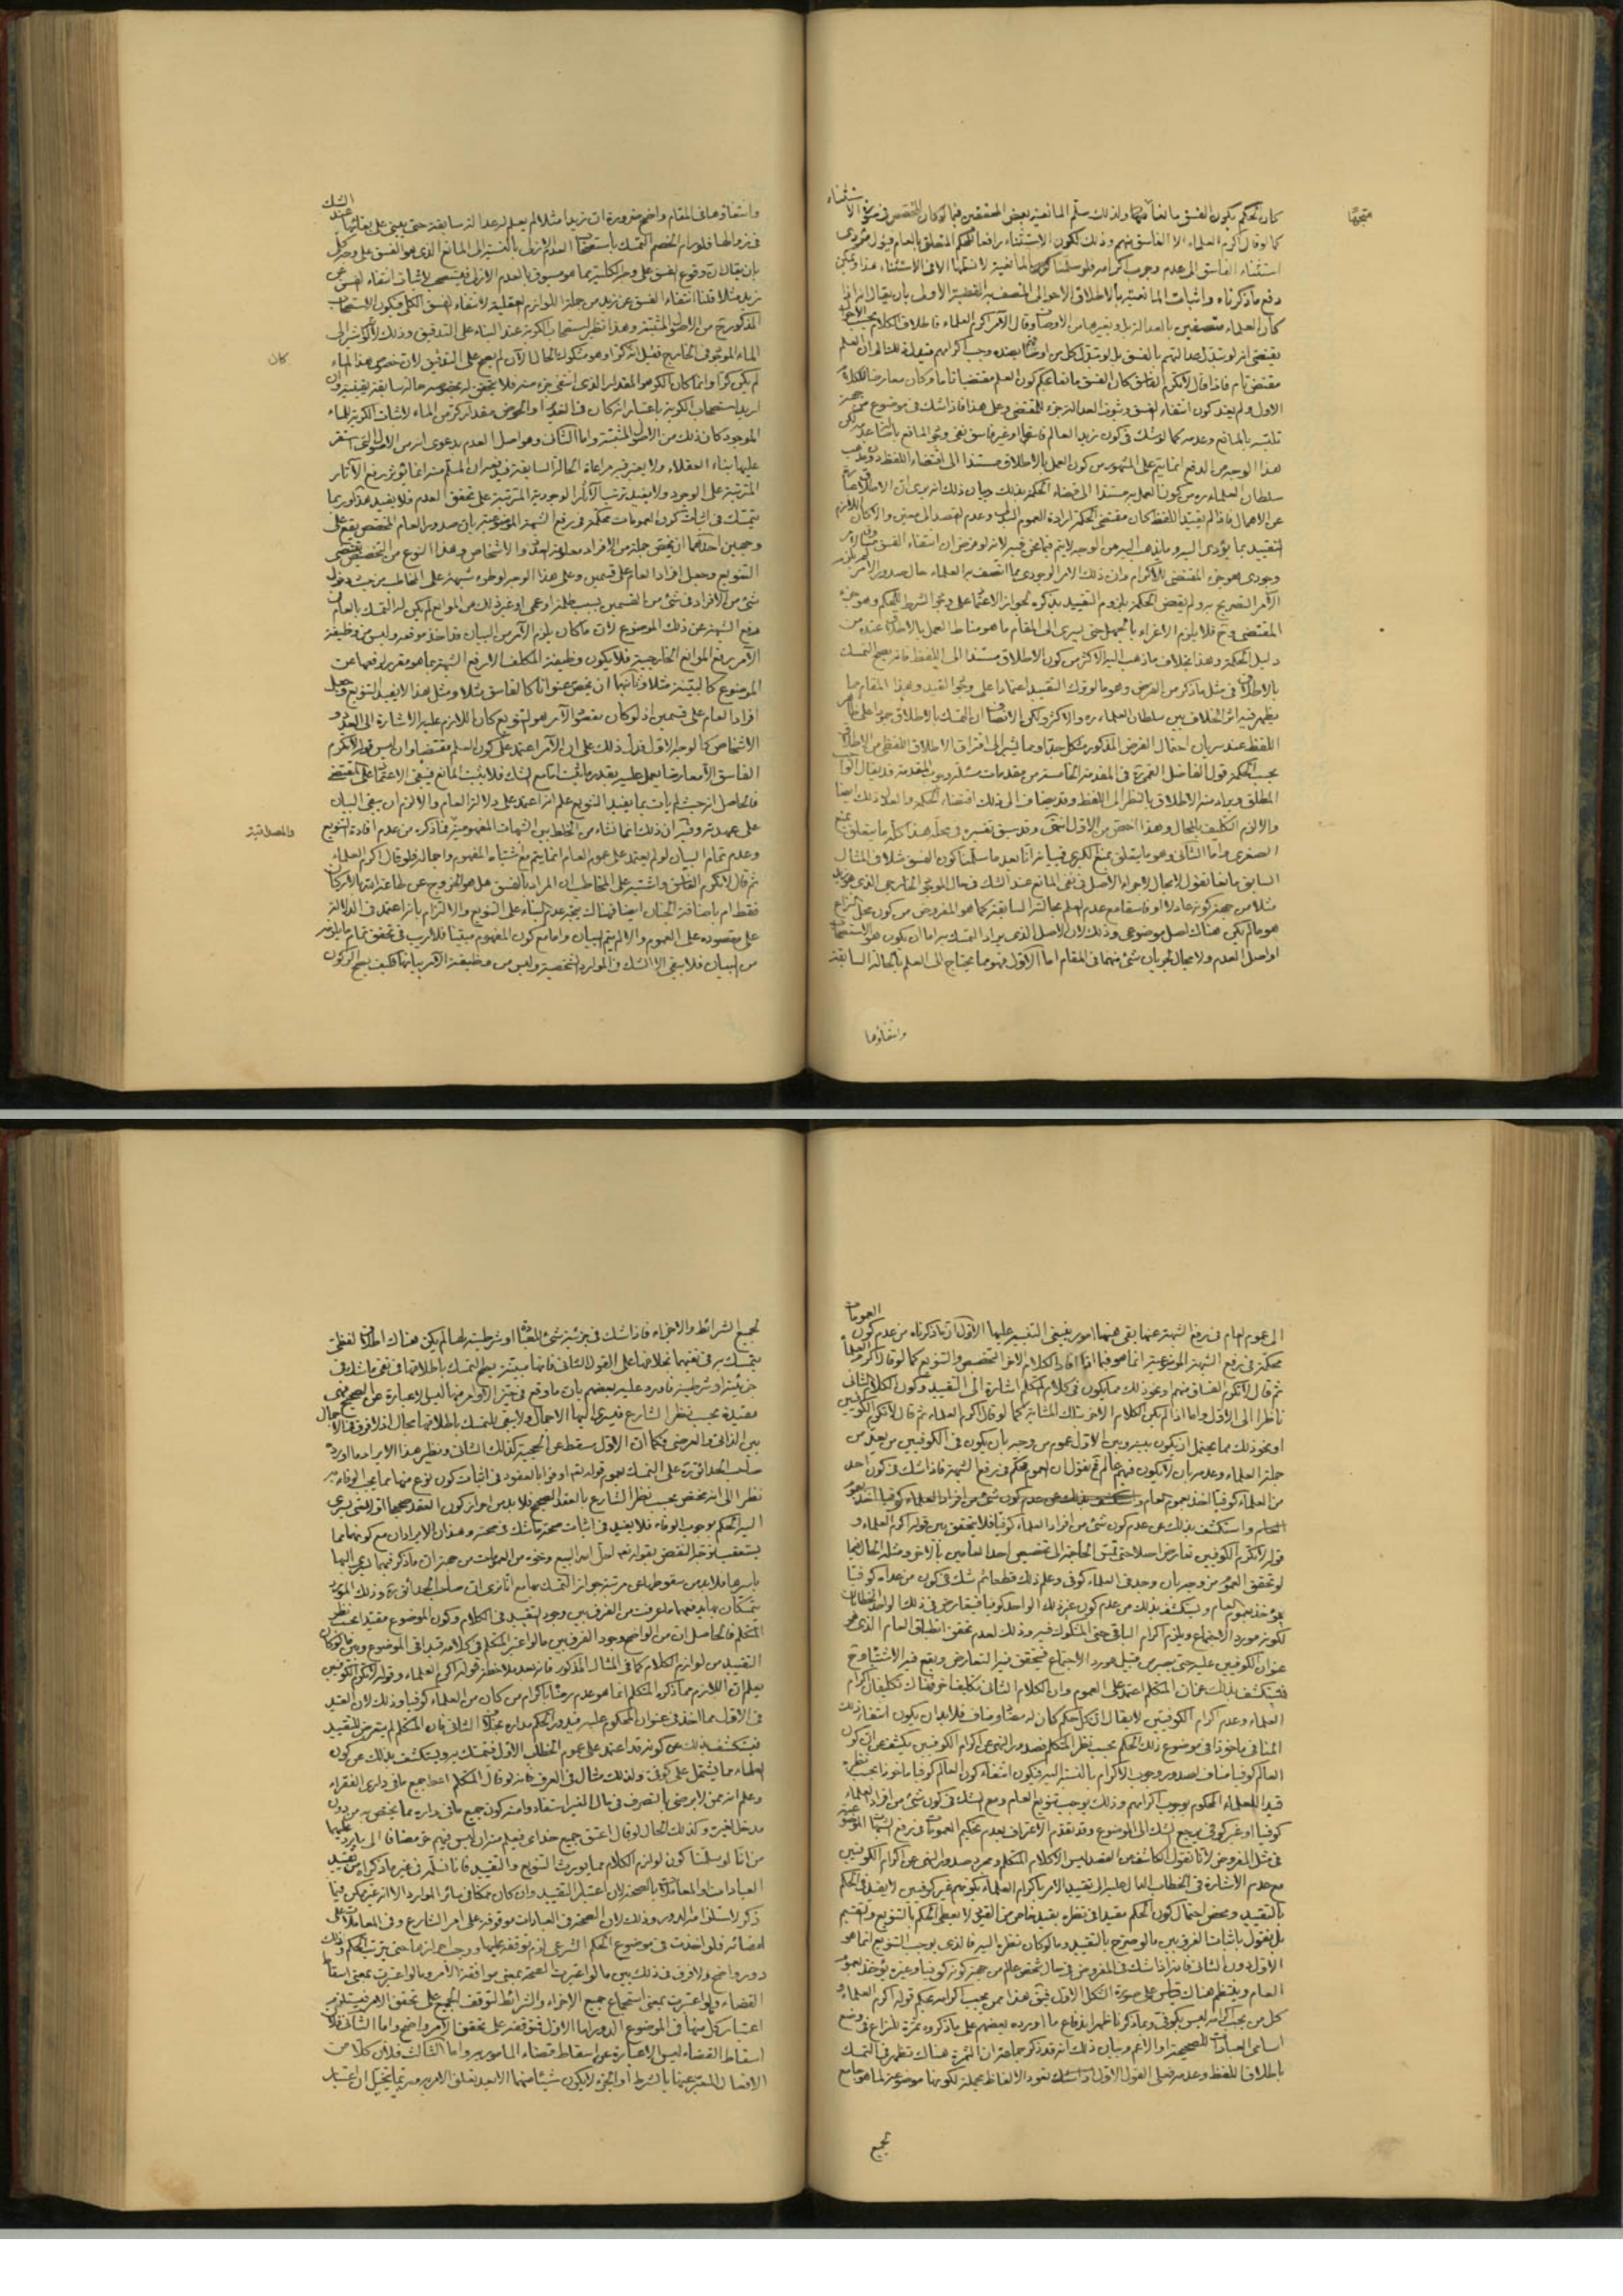 كان الحكم بكون الفسق مانعا متجها ولذلك سلم المانعية بعض المحققين فيما لو كان المخصص في صورة الاستثناء
كما لو قال اكرم العلماء الا الفاسق منهم وذلك لكون الاستثناء رافعا للحكم المتعلق بالعام فيؤل مؤدى
استثناء الفاسق الى عدم وجوب اكرامه فلو سلمنا كون المانعية لا نسلمها الا في الاستثناء هذا ويمكن
دفع ما ذكرناه واثبات المانعية بالاطلاق الاحوالى المتصف به القضية الاولى بان يقال انه اذا
كان العلماء متصفين بالعدالة بل وبغيرها من الاوصاف وقال الآمر اكرم العلماء فاطلاق الكلام بحسب الاحوال
يقتضى انه لو تبدل عدالتهم بالفسق بل لو تبدل كل من اوصافهم بضده وجب اكرامهم فيدل ان العلم
مقتض تام فاذا قال لا تكرم الفاسق كان الفسق مانعا بحكم كون العلم مقتضيا تاما وكان معارضا للكلام
الاول ولم يعتد كون انتفاء الفسق وثبوت العدالة جزء للمقتضى وعلى هذا فاذا شك في موضوع من جهة
تلبسه بالمانع وعدمه كما لو شك في كون زيد العالم فاسقا او غير فاسق نفى وجود المانع بالبناء على عدمه لكن
هذا الوجه من الدفع انما يتم على المشهور من كون العمل بالاطلاق مستندا الى اقتضاء اللفظ دون مذهب
سلطان العلماء ره من كون العمل به مستندا الى قضاء الحكمة بذلك وبيان ذلك انه يرى ان الاطلاق
عن الاهمال فاذا لم يقيد اللفظ كان مقتضى الحكمة ارادة العموم وعدم القصد الى معين والا كان اللازم
التقييد بما يؤدى اليه وما ذهب اليه من الوجه لا يتم فيما نحن فيه لانه لو فرض ان انتفاء الفسق مثلا امر
وجودى هو جزء المقتضى للاكرام وان ذلك الامر الوجودى مما اتصف به العلماء حال صدور الامر لم يلزم
الآمر التصريح به ولم يقض الحكمة بلزوم التقييد بذكره لجواز الاعتماد على وجود الشرط للحكم وهو جزء
المقتضى وح فلا يلزم الاغراء بالجهل حتى يسرى الى المقام ما هو مناط العمل بالاطلاق عنده من
دليل الحكمة وهذا بخلاف ما ذهب اليه الاكثر من كون الاطلاق مستندا الى اللفظ فانه يصح التمسك
بالاطلاق في مثل ما ذكر من الفرض وهو ما لو ترك التقييد اعتمادا على وجود القيد وهذا المقام مما
يظهر فيه اثر الخلاف بين سلطان العلماء ره والاكثر ولكن الانصاف ان التمسك بالاطلاق جمودا على ظاهر
اللفظ عند سريان احتمال الفرض المذكور مشكل جدا ومما يشير الى افتراق الاطلاق اللفظى من الاطلاق
بحسب الحكمة قول الفاضل القمى ره في المقدمة الخامسة من مقدمات مسئلة وجوب المقدمة قد يقال الواجب
المطلق ويراد منه الاطلاق بالنظر الى اللفظ وقد يضاف الى ذلك اقتضاء الحكمة والعدل ذلك ايضا
والا لزم التكليف بالمحال وهذا اخص من الاول انتهى وقد سبق تفسيره في محله هذا كله ما يتعلق بمنع
الصغرى واما الثانى وهو ما يتعلق بمنع الكبرى فبيانه انا بعد ما سلمنا كون الفسق مثلا في المثال
السابق مانعا نقول لا مجال لاجراء الاصل في نفى المانع عند الشك في حال الموجود الخارجى الذى هو زيد
مثلا من جهة كونه عادلا او فاسقا مع عدم العلم بحالته السابقة كما هو المفروض من كون محل النزاع
هو ما لم يكن هناك اصل موضوعى وذلك لان الاصل الذى يراد التمسك به اما ان يكون هو الاستصحاب
او اصل العدم ولا مجال لجريان شئ منهما في المقام اما الاول فهو ما يحتاج الى العلم بالحالة السابقة
وانتفاؤها
وانتفاؤها في المقام واضح ضرورة ان زيدا مثلا لم يعلم له عدالة سابقة حتى يبنى على بقائها عند الشك
في زوالها فلو رام الخصم التمسك باستصحاب العدم الازلى بالنسبة الى المانع الذى هو الفسق على وجه كلى
بان يقال ان وقوع الفسق على وجه الكلية مما هو مسبوق بالعدم الازلى فيستصحب لاثبات انتفاء الفسق عن
زيد مثلا قلنا انتفاء الفسق عن زيد من جملة اللوازم العقلية لانتفاء الفسق الكلى فيكون الاستصحاب
المذكور ح من الاصول المثبتة وهذا نظير استصحاب الكرية عند البناء على التدقيق وذلك لانه لو اشير الى
الماء الموجود في الخارج فقيل انه كان كرا وهو مشكوك الحال الآن لم يصح على التدقيق لان خصوص هذا الماء
لم يكن كرا وانما كان الكر هو المقدار الذى انتفى جزء منه فلا يتحقق له بخصوصه حالة سابقة يقينية وان
اريد استصحاب الكرية باعتبار انه كان في الغدير او الحوض مقدار كر من الماء لاثبات الكرية للماء
الموجود كان ذلك من الاصول المثبتة واما الثانى وهو اصل العدم بدعوى انه من الاصول التى استقر
عليها بناء العقلاء ولا يعتبر فيه مراعاة الحالة السابقة ففيه ان المسلم منه انما يؤثر برفع الآثار
المترتبة على الوجود ولا يفيد ترتب الآثار الوجودية المترتبة على تحقق العدم فلا يفيد هذا وربما
يتمسك في اثبات كون العمومات محكمة في رفع الشبهة الموضوعية بان صدور العام المخصص يقع على
وجهين احدهما ان يخص جملة من الافراد معلومة العدد والاشخاص وهذا النوع من التخصيص يقتضى
التنويع وجعل افراد العام على قسمين وعلى هذا الوجه لو طرء شبهة على المخاطب من حيث دخول
شئ من الافراد في شئ من القسمين بسبب ظلمة او عمى او غير ذلك من الموانع لم يكن له التمسك بالعام في
دفع الشبهة عن ذلك الموضوع لان ما كان يلزم الآمر من البيان قد اخذ موقعه وليس من وظيفة
الآمر رفع الموانع الخارجية فلا يكون وظيفة المكلف الا رفع الشبهة بما هو مقرر لرفعها عن
الموضوع كالبينة مثلا وثانيهما ان يخص عنوانا كالفاسق مثلا ومثل هذا لا يفيد التنويع وجعل
افراد العام على قسمين اذ لو كان مقصود الآمر هو التنويع كان اللازم عليه الاشارة الى العدد و
الاشخاص كما لوجه الاول فدل ذلك على ان الآمر اعتمد على كون العلم مقتضيا وان ليس قوله لا تكرم
الفاسق الا معارضا يعمل عليه بقدر ما ثبت اما مع الشك فلا يثبت المانع فيبقى الاعتماد على المقتضى
فالحاصل انه حيث لم يات بما يفيد التنويع علم انه اعتمد على دلالة العام والا لزم ان يبقى البيان
على عهدته وفيه ان ذلك انما نشاء من الخلط بين الشبهات المفهومية والمصداقية فما ذكره من عدم افادة التنويع
وعدم تمام البيان لو لم يعتمد على عموم العام انما يتم مع اشتباه المفهوم واجماله فلو قال اكرم العلماء
ثم قال لا تكرم الفاسق واشتبه على المخاطب ان المراد بالفسق هل هو الخروج عن طاعة الله بالاركان
فقط ام باضافة الجنان ايضا فهناك يتجه عدم البناء على التنويع والالتزام بانه اعتمد في الدلالة
على مقصوده على العموم والا لم يتم البيان واما مع كون المفهوم مبينا فلا ريب في تحقق تمام ما يلزمه
من البيان فلا يبقى الا الشك في الموارد الشخصية وليس من وظيفة الآمر بيانها فكيف يصح الركون
الى عموم العام في رفع الشبهة عنها بقى هنا امور ينبغى التنبيه عليها الاول ان ما ذكرناه من عدم كون العمومات
محكمة في رفع الشبهة الموضوعية انما هو فيما اذا افاد الكلام الاخر التخصيص والتنويع كما لو قال اكرم العلماء
ثم قال لا تكرم الفساق منهم ونحو ذلك مما يكون في كلام المتكلم اشارة الى التقييد وكون الكلام الثانى
ناظرا الى الاول واما اذا لم يكن الكلام الاخر بتلك المثابة كما لو قال اكرم العلماء ثم قال لا تكرم الكوفيين
او نحو ذلك مما يحتمل ان يكون بينه وبين الاول عموم من وجه بان يكون في الكوفيين من يعد من
جملة العلماء وعدمه بان لا يكون فيهم عالم فح نقول ان العموم محكم في رفع الشبهة فاذا شك في كون احد
من العلماء كوفيا اخذ بعموم العام
واستكشف بذلك عن عدم كون شئ من افراد العلماء كوفيا فلا يتحقق بين قوله اكرم العلماء و
قوله لا تكرم الكوفيين تعارض اصلا حتى تمس الحاجة الى تخصيص احد العامين بالاخر ومثله الحال فيما
لو تحقق العموم من وجه بان وجد في العلماء كوفى وعلم ذلك قطعا ثم شك في كون من عداه كوفيا
يؤخذ بعموم العام ويستكشف بذلك من عدم كون غير ذلك الواحد كوفيا فيتعارض في ذلك الواحد الخطابان
لكونه مورد الاجتماع ويلزم اكرام الباقى حتى المشكوك فيه وذلك لعدم تحقق انطباق العام الذى هو
عنوان الكوفيين عليه حتى يصير من قبيل مورد الاجتماع فيتحقق فيه التعارض ويقع فيه الاشتباه وح
فيستكشف بذلك عن ان المتكلم اعتمد على العموم وان الكلام الثانى تكليف آخر فهناك تكليفان اكرام
العلماء وعدم اكرام الكوفيين لا يقال ان كل حكم كان له مضاد ومناف فلابد ان يكون انتفاء ذلك
المنافى ماخوذا في موضوع ذلك الحكم بحسب نظر المتكلم فصدور النهى عن اكرام الكوفيين يكشف عن ان كون
العالم كوفيا مناف لصدور وجوب الاكرام بالنسبة اليه فيكون انتفاء كون العالم كوفيا ماخوذا بحسب نظره
قيدا للعلماء المحكوم بوجوب اكرامهم وذلك يوجب تنويع العام ومع الشك في كون شئ من افراد العلماء
كوفيا او غير كوفى يرجع الشك الى الموضوع وقد تقدم الاعتراف بعدم تحكيم العمومات في رفع الشبهات الموضوعية
في مثل المفروض لانا نقول الكاشف عن القصد ليس الا كلام المتكلم ومجرد صدور النهى عن اكرام الكوفيين
مع عدم الاشارة في الخطاب الدال عليه الى تقييد الامر باكرام العلماء بكونهم غير كوفيين لا يفيد في الحكم
بالتقييد ومحض احتمال كون الحكم مقيدا في نظره بقيد خاص من القيود لا يعطى الحكم بالتنويع والتقسيم
بل نقول باثبات الفرق بين ما لو صرح بالتقييد وما لو كان نظره اليه فالذى يوجب التنويع انما هو
الاول دون الثانى فانه اذا شك في المفروض في حال شخص عالم من جهة كونه كوفيا وغيره يؤخذ بعموم
العام وينتظم هناك قياس على صورة الشكل الاول فيق هذا ممن يجب اكرامه بحكم قوله اكرم العلماء و
كل من يجب اكرامه ليس بكوفى ومما ذكرنا ظهر اندفاع ما اورده بعضهم على ما ذكروه ثمرة للنزاع في وضع
اسامى العبادات للصحيح او الاعم وبيان ذلك انه قد ذكر جماعة ان الثمرة هناك تظهر في التمسك
باطلاق اللفظ وعدمه فعلى القول الاول تعود الالفاظ مجملة لكونها موضوعة لما هو جامع
لجميع
لجميع الشرائط والاجزاء فاذا شك في جزئية شئ للعبادة او شرطيته لها لم يكن هناك اطلاق لفظى
يتمسك به في نفيها بخلافها على القول الثانى فانها مبينة يصح التمسك باطلاقها في نفى ما شك في
جزئيته او شرطيته فاورد عليه بعضهم بان ما وقع في حيز الاوامر منها ليس الا عبارة عن الصحيح فهى
مقيدة بحسب نظر الشارع فيسرى اليها الاجمال ولا يبقى للتمسك باطلاقها مجال اذ لا فرق في الاجمال
بين الذاتى والعرضى فكما ان الاول يسقط عن الحجية كذلك الثانى ونظير هذا الايراد ما اورده
صاحب الحدائق ره على التمسك بعموم قوله تعم اوفوا بالعقود في اثبات كون نوع منها مما يجب الوفاء به
نظرا الى انه مخصص بحسب نظر الشارع بالعقد الصحيح فلابد من احراز كون العقد صحيحا اولا حتى يسرى
اليه الحكم بوجوب الوفاء فلا يفيد في اثبات صحة ما شك في صحته وهذان الايرادان مع كونهما مما
يستعقب توجه النقض بقوله تعم احل الله البيع ونحوه من العمومات من جهة ان ما ذكر فيهما يجرى اليها
باسرها فلابد من سقوطها عن مرتبة جواز التمسك بها مع انا نرى ان صاحب الحدائق ره وذلك المورد
يتمسكان بها يدفعهما ما عرفت من الفرق بين وجود التقييد في الكلام وكون الموضوع مقيدا بحسب نظر
المتكلم فالحاصل ان من الواضح وجود الفرق بين ما لو اعتبر المتكلم في كلامه قيدا في الموضوع وبين ما لو كان
التقييد من لوازم الكلام كما في المثال المذكور فانه بعد ملاحظة قوله اكرم العلماء وقوله لا تكرم الكوفيين
يعلم ان اللازم مما ذكره المتكلم انما هو عدم رضاه باكرام من كان من العلماء كوفيا وذلك لان القيد
في الاول مما اخذ في عنوان المحكوم عليه فيدور الحكم مداره بخلاف الثانى فان المتكلم لم يتعرض للتقييد
فيستكشف بذلك عن كونه قد اعتمد على عموم الخطاب الاول فيتمسك به ويستكشف بذلك عن كون
العلماء مما يشتمل على كوفى ولذلك مثال في العرف فانه لو قال المتكلم اعط جميع ما في دارى الفقراء
وعلم انه ممن لا يرضى بالتصرف في مال الغير استفاد وامنه كون جميع ما في داره مما يختص به من دون
مدخل لغيره وكذلك الحال لو قال اعتق جميع خدامى فيعلم منه ان ليس فيهم حر مضافا الى ما يرد عليهما
من انا لو سلمنا كون لوازم الكلام مما يورث التنويع والتقييد فانا نسلمه في غير ما ذكراه من تقييد
العبادات او المعاملات بالصحة لان اعتبار التقييد وان كان ممكنا في سائر الموارد الا انه غير ممكن فيما
ذكر لاستلزامه الدور وذلك لان الصحة في العبادات موقوفة على امر الشارع وفى المعاملات على
امضائه فلو اخذت في موضوع الحكم الشرعى لزم توقفه عليها ووجب احرازها حتى يترتب الحكم وذلك
دور واضح ولا فرق في ذلك بين ما لو اعتبرت الصحة بمعنى موافقة الامر وما لو اعتبرت بمعنى اسقاط
القضاء ولو اعتبرت بمعنى استجماع جميع الاجزاء والشرائط لتوقف الجميع على تحقق الامر فيستلزم
اعتبار كل منها في الموضوع الدور اما الاول فتوقفه على تحقق الامر واضح واما الثانى فلان
اسقاط القضاء ليس الا عبارة عن اسقاط قضاء المامور به واما الثالث فلان كلا من
الافعال المعبر عنها بالشرط او الجزء لا يكون شيئا منهما الا بعد تعلق الامر به وربما يتخيل ان اعتبار